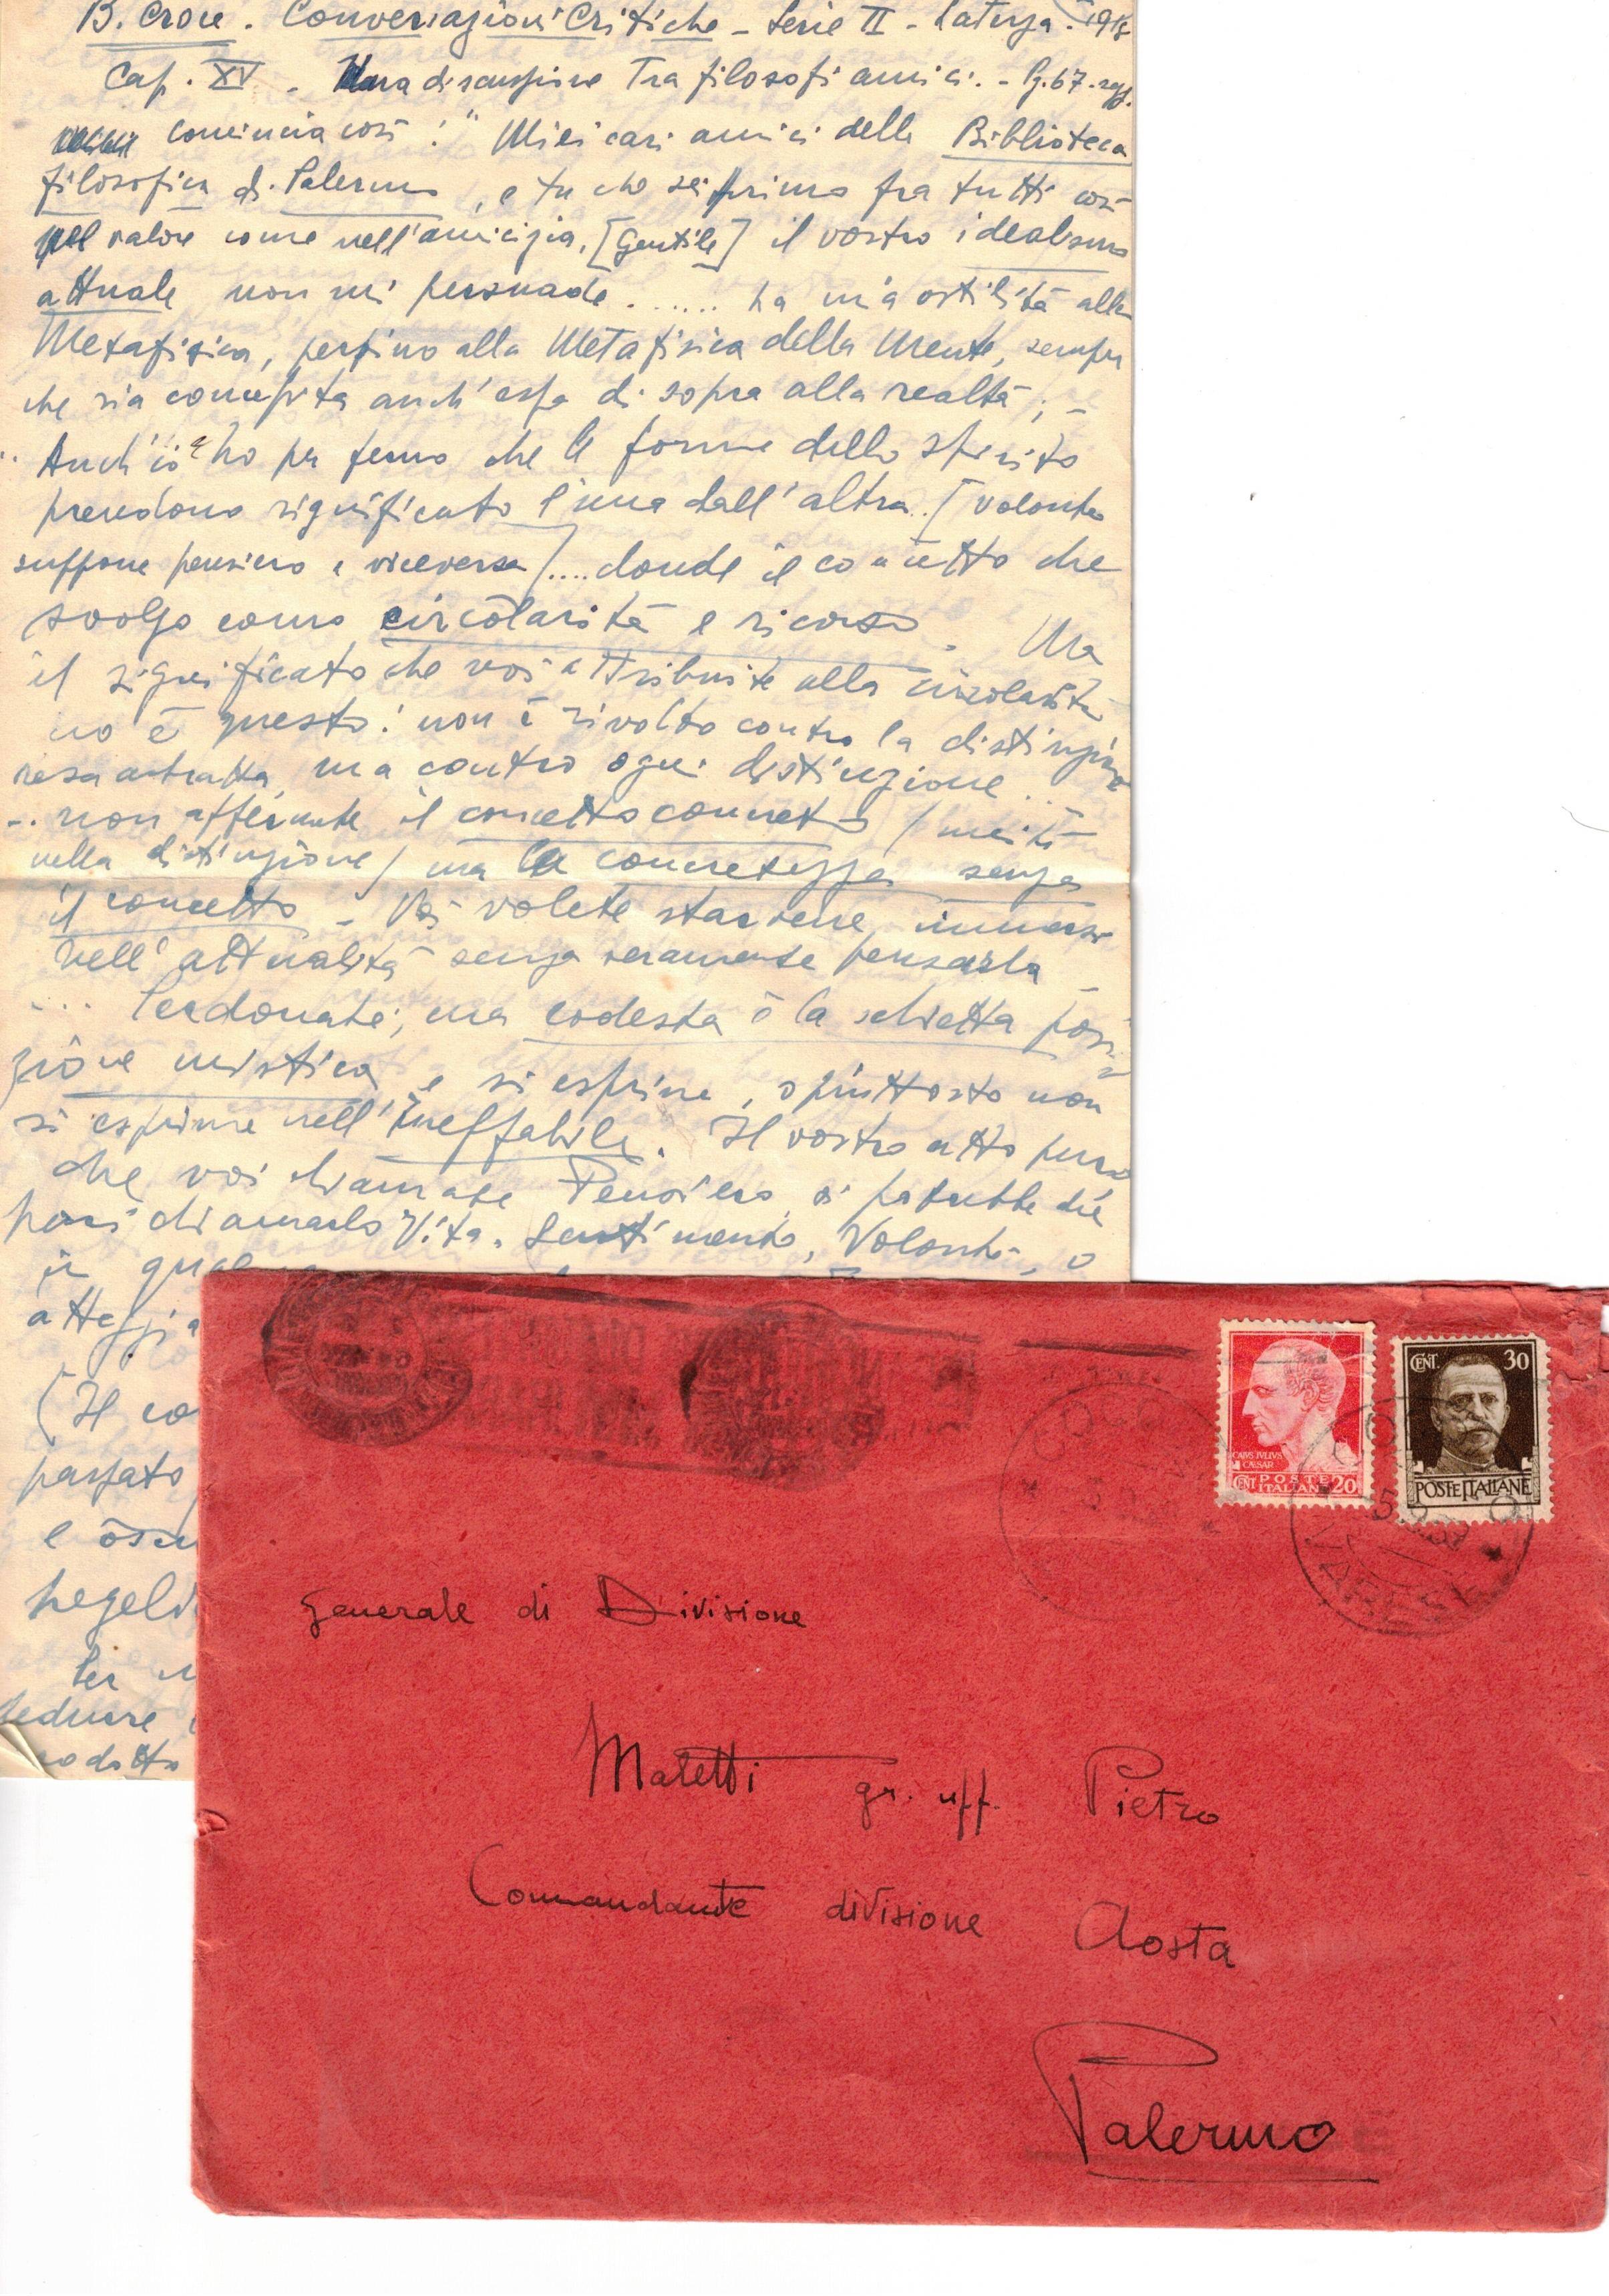 B. Croce. Conversazioni Critiche - Serie II - Laterza. 1918
Cap. XV - Una discussione tra filosofi amici. - Pg. 67. sgg.
comincia così: "Miei cari amici della Biblioteca
filosofica di Palermo, e tu che sei primo fra tutti così
nel valore come nell'amicizia, [Gentile] il vostro idealismo
attuale non mi persuade ....... La mia ostilità alla
Metafisica, persino alla Metafisica della Mente, sempre
che sia concepita anch'essa di sopra alla realtà; -
Anch'io ho per fermo che le forme dello spirito
prendono significato l'una dall'altra. [volontà
suppone pensiero e viceversa] .... donde il concetto che
svolgo come circolarità e ricorso. Ma
il significato che voi attribuite alla circolarità
no è questo: non è rivolto contro la distinzione
resa astratta, ma contro ogni distinzione ...
... non affermate il concetto concreto (unità
nella distinzione) ma la concretezza senza
il concetto - Voi volete starvene immersi
nell'attualità senza veramente pensarla
.... Perdonate, ma codesta è la schietta posi
zione mistica e si esprime, o piuttosto non
si esprime nell'ineffabile. Il vostro atto puro
che voi chiamate Pensiero, si potrebbe del
pari chiamarlo Vita, Sentimento, Volontà, o
in
(Il co
passato
e oscu
hegeli
Per
dedurre
CENT. 30
POSTE ITALIANE
CAIVS IVLIVS
CAESAR
CENT POSTE
ITALIANE 20
VARESE
Generale di Divisione
Maletti gr. uff. Pietro
Commandante divisione Aosta
Palermo